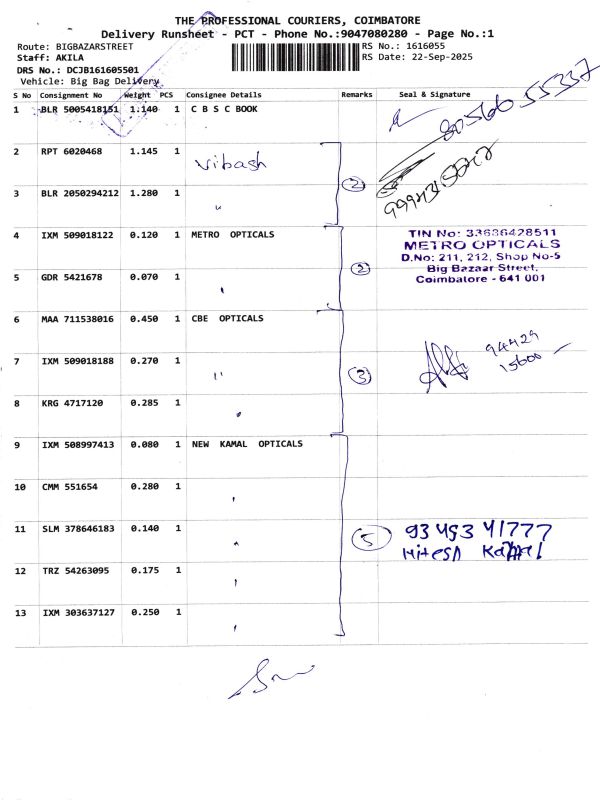 THE PROFESSIONAL COURIERS, COIMBATORE
Delivery Runsheet - PCT - Phone No.:9047080280 - Page No.:1
Route: BIGBAZARSTREET RS No.: 1616055
Staff: AKILA RS Date: 22-Sep-2025
DRS No.: DCJB161605501
Vehicle: Big Bag Delivery
S No Consignment No Weight PCS Consignee Details Remarks Seal & Signature
1 BLR 5005418151 1.140 1 C B S C BOOK
2 RPT 6020468 1.145 1 Vibash
②
3 BLR 2050294212 1.280 1 "
4 IXM 509018122 0.120 1 METRO OPTICALS
②
TIN No: 33686428511
METRO OPTICALS
D.No: 211, 212, Shop No-5
Big Bazaar Street,
Coimbatore - 641 001
5 GDR 5421678 0.070 1
6 MAA 711538016 0.450 1 CBE OPTICALS
94429
15600
7 IXM 509018188 0.270 1 "
③
8 KRG 4717120 0.285 1 "
9 IXM 508997413 0.080 1 NEW KAMAL OPTICALS
10 CMM 551654 0.280 1 "
11 SLM 378646183 0.140 1 " ⑤ 93453 41777
Hitesh
12 TRZ 54263095 0.175 1 "
13 IXM 303637127 0.250 1 "